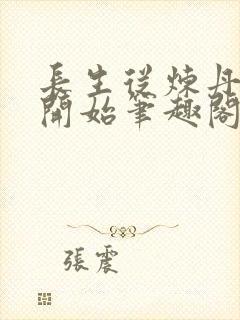 長生從煉丹
開始筆趣閣
張震